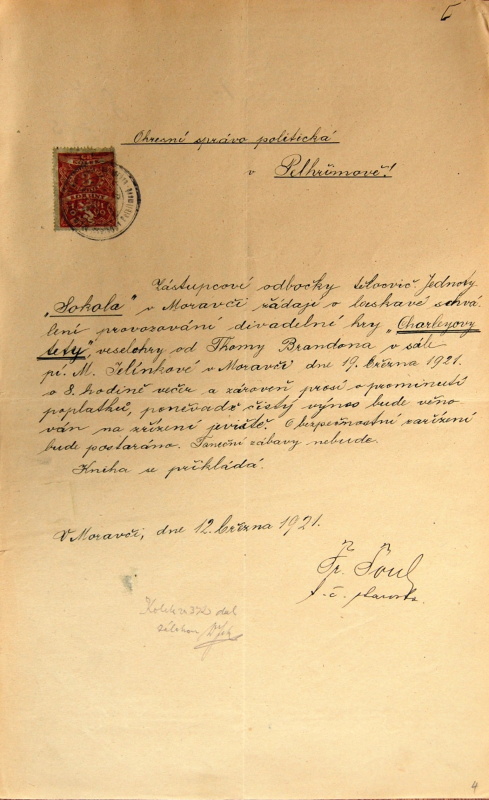 Okresní správo politická
v Pelhřimově!
Zástupcové odbočky tělocvič. Jednoty
„Sokola" v Moravči žádají o laskavé schvá
lení provozování divadelní hry „Charleyovy
tety", veselohry od Thomy Brandona v sále
pí. M. Jelínkové v Moravči dne 19. března 1921.
o 8. hodině večer a zároveň prosí o prominutí
poplatků, poněvadž čistý výnos bude věno
ván na zřízení jeviště. O bezpečnostní zařízení
bude postaráno. Taneční zábavy nebude.
Kniha se přikládá.
V Moravči, dne 12. března 1921.
Fr.
t. č. starosta.
4